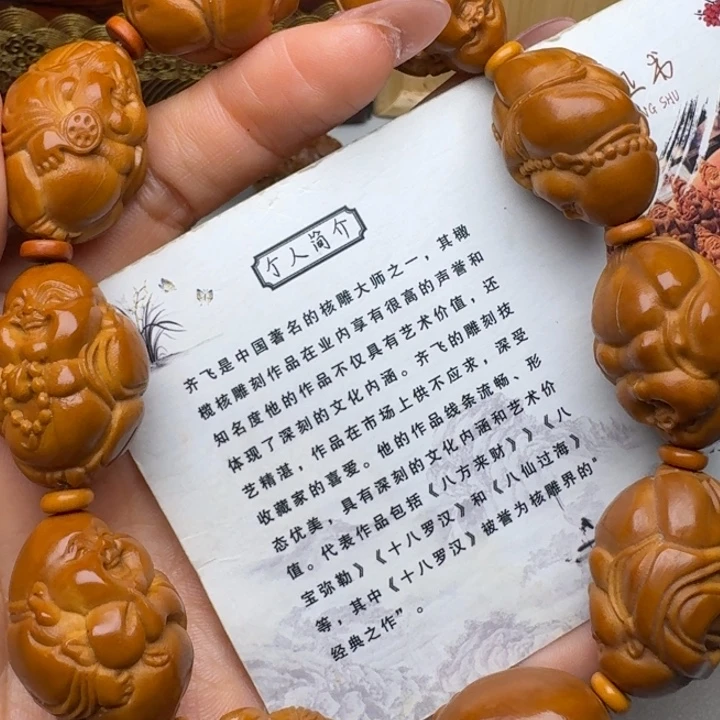 丑弟
NG SHU
个人简介
齐飞是中国著名的核雕大师之一，其橄
榄核雕刻作品在业内享有很高的声誉和
知名度他的作品不仅具有艺术价值，还
体现了深刻的文化内涵。齐飞的雕刻技
艺精湛，作品在市场上供不应求，深受
收藏家的喜爱。他的作品线条流畅、形
态优美，具有深刻的文化内涵和艺术价
值。代表作品包括《八方来财》》《八
宝弥勒》《十八罗汉》和《八仙过海》
等，其中《十八罗汉》被誉为核雕界的“
经典之作”。